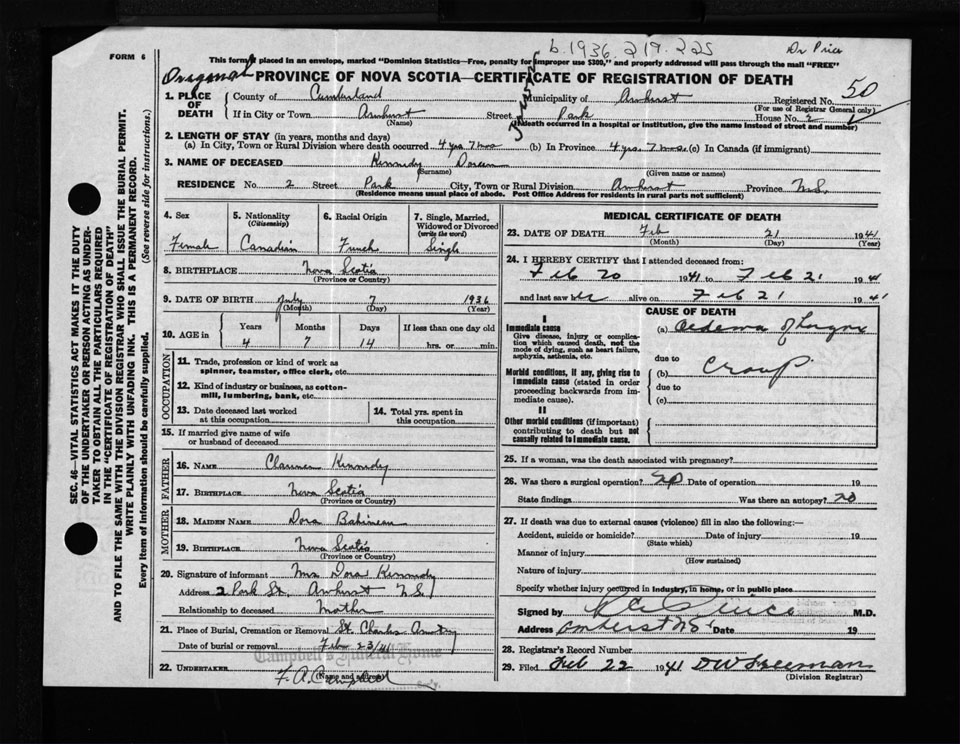 b.1936 219.225
Dr Price
FORM 6
This form if placed in an envelope, marked "Dominion Statistics—Free, penalty for improper use $300," and properly addressed will pass through the mail "FREE"
PROVINCE OF NOVA SCOTIA—CERTIFICATE OF REGISTRATION OF DEATH
1. PLACE OF DEATH County of Cumberland Municipality of Amherst Registered No. 50
(For use of Registrar General only)
If in City or Town Amherst Street Park House No. 2
(Name) (If death occurred in a hospital or institution, give the name instead of street and number)
2. LENGTH OF STAY (in years, months and days)
(a) In City, Town or Rural Division where death occurred 4 yrs 7 mos (b) In Province 4 yrs. 7 mos. (c) In Canada (if immigrant)
3. NAME OF DECEASED Kennedy Doreen
(Surname) (Given name or names)
RESIDENCE No. 2 Street Park City, Town or Rural Division Amherst Province N.S.
(Residence means usual place of abode. Post Office Address for residents in rural parts not sufficient)
4. Sex 5. Nationality (Citizenship) 6. Racial Origin 7. Single, Married, Widowed or Divorced (write the word)
Female Canadian French Single
8. BIRTHPLACE Nova Scotia
(Province or Country)
9. DATE OF BIRTH July 7 1936
(Month) (Day) (Year)
10. AGE in Years Months Days If less than one day old
4 7 14 hrs. or min.
OCCUPATION
11. Trade, profession or kind of work as spinner, teamster, office clerk, etc.
12. Kind of industry or business, as cotton-mill, lumbering, bank, etc.
13. Date deceased last worked at this occupation
14. Total yrs. spent in this occupation
15. If married give name of wife or husband of deceased
FATHER
16. NAME Kennedy
17. BIRTHPLACE Nova Scotia
(Province or Country)
MOTHER
18. MAIDEN NAME Dora Babineau
19. BIRTHPLACE Nova Scotia
(Province or Country)
20. Signature of informant Mrs Dora Kennedy
Address 2 Park St. Amherst N.S.
Relationship to deceased Mother
21. Place of Burial, Cremation or Removal St. Charles
Date of burial or removal Feb 23/41
Campbell's Funeral Home
22. UNDERTAKER F. A. Campbell
(Name and address)
MEDICAL CERTIFICATE OF DEATH
23. DATE OF DEATH Feb 21 1941
(Month) (Day) (Year)
24. I HEREBY CERTIFY that I attended deceased from:
Feb 20 1941 to Feb 21 1941
and last saw her alive on Feb 21 1941
CAUSE OF DEATH
I
Immediate cause
Give disease, injury or complication which caused death, not the mode of dying, such as heart failure, asphyxia, asthenia, etc.
(a) Oedema of larynx
due to
Morbid conditions, if any, giving rise to immediate cause (stated in order proceeding backwards from immediate cause).
(b) Croup
due to
(c)
II
Other morbid conditions (if important) contributing to death but not causally related to immediate cause.
25. If a woman, was the death associated with pregnancy?
26. Was there a surgical operation? No Date of operation 19
State findings Was there an autopsy? No
27. If death was due to external causes (violence) fill in also the following:—
Accident, suicide or homicide? Date of injury 19
(State which)
Manner of injury
(How sustained)
Nature of injury
Specify whether injury occurred in industry, in home, or in public place
Signed by Price M.D.
Address Amherst NS Date 19
28. Registrar's Record Number
29. Filed Feb 22 1941 DW Freeman
(Division Registrar)
SEC. 46—VITAL STATISTICS ACT MAKES IT THE DUTY
OF THE UNDERTAKER OR PERSON ACTING AS UNDER-
TAKER TO OBTAIN ALL THE PARTICULARS REQUIRED
IN THE "CERTIFICATE OF REGISTRATION OF DEATH"
AND TO FILE THE SAME WITH THE DIVISION REGISTRAR WHO SHALL ISSUE THE BURIAL PERMIT.
WRITE PLAINLY WITH UNFADING INK. THIS IS A PERMANENT RECORD.
Every item of Information should be carefully supplied. (See reverse side for instructions.)